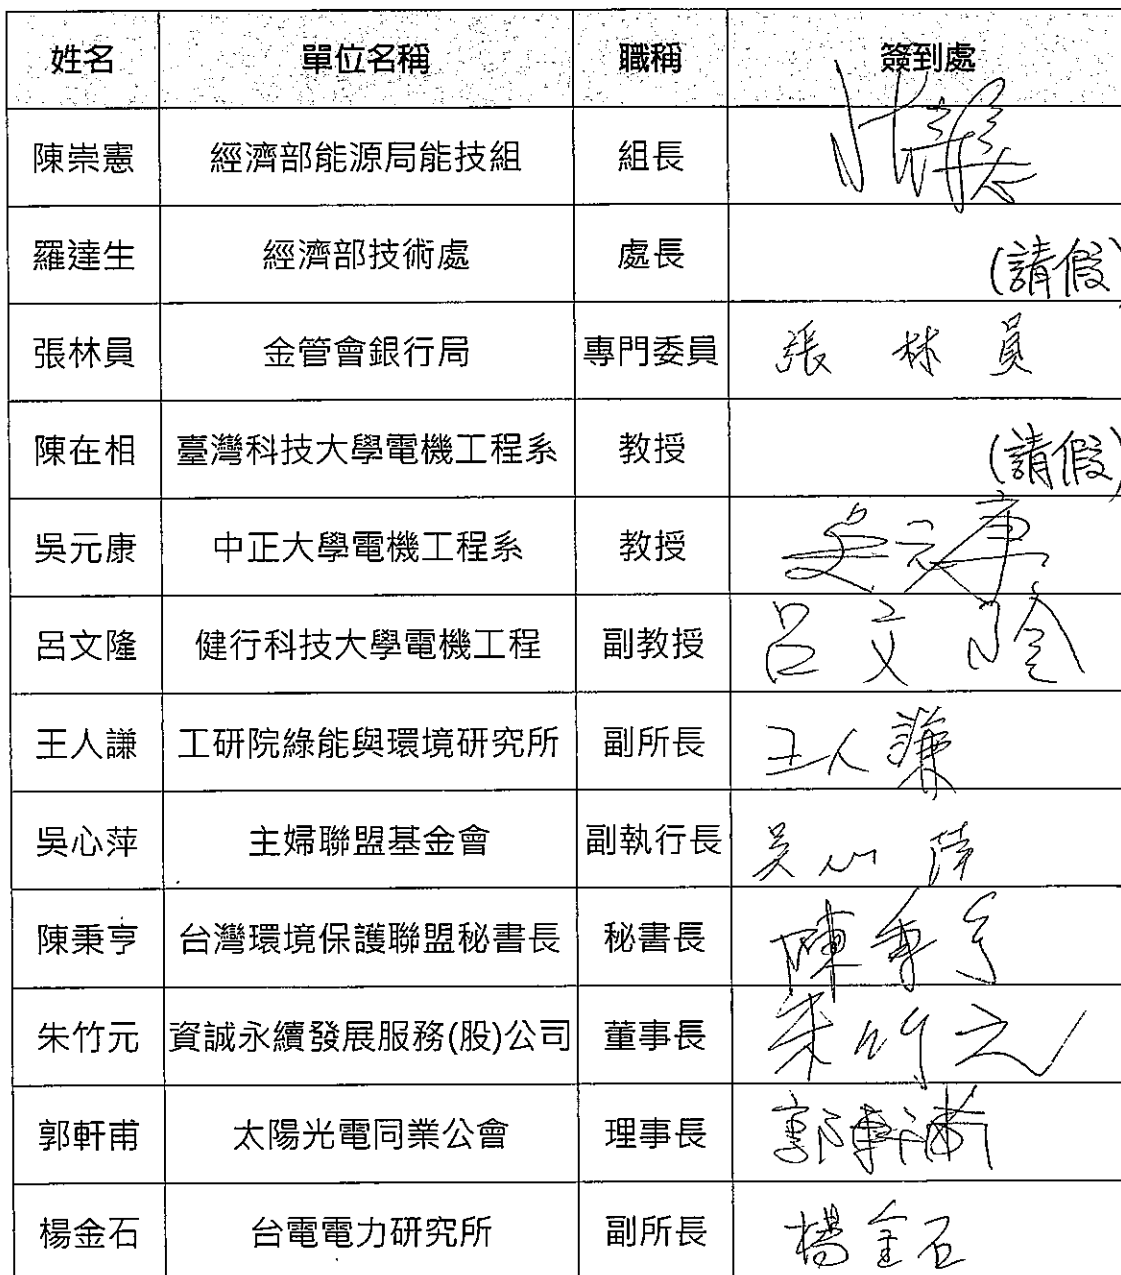 姓名 單位名稱 職稱 簽到處
陳崇憲 經濟部能源局能技組 組長
羅達生 經濟部技術處 處長 (請假)
張林員 金管會銀行局 專門委員 張林員
陳在相 臺灣科技大學電機工程系 教授 (請假)
吳元康 中正大學電機工程系 教授 吳元康
呂文隆 健行科技大學電機工程 副教授 呂文隆
王人謙 工研院綠能與環境研究所 副所長 王人謙
吳心萍 主婦聯盟基金會 副執行長 吳心萍
陳秉亨 台灣環境保護聯盟秘書長 秘書長 陳秉亨
朱竹元 資誠永續發展服務(股)公司 董事長 朱竹元
郭軒甫 太陽光電同業公會 理事長 郭軒甫
楊金石 台電電力研究所 副所長 楊金石